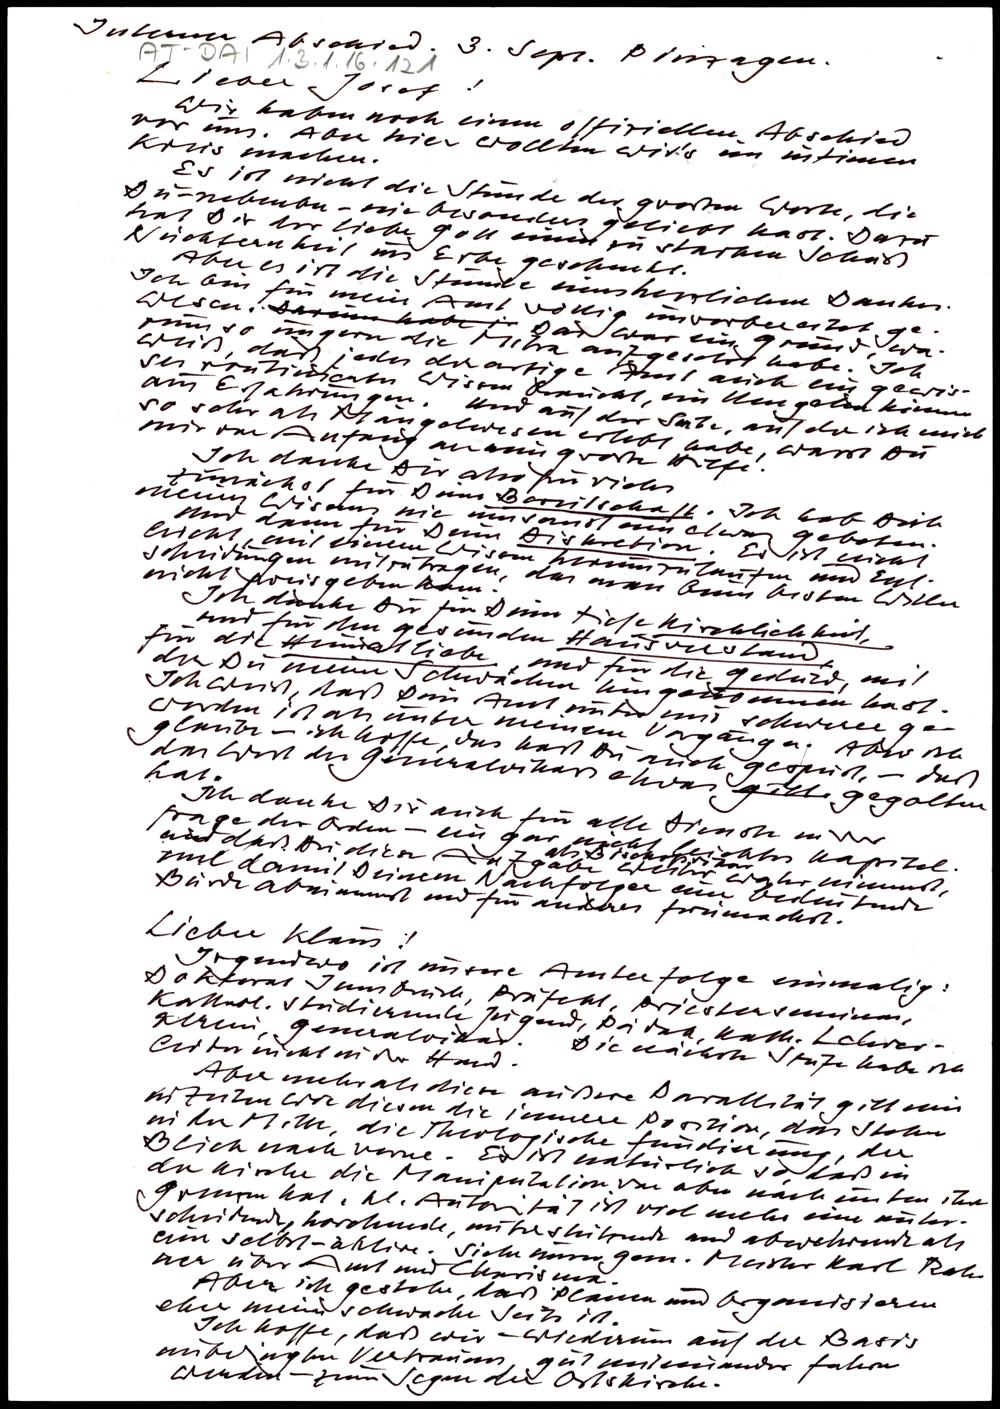 Interner Abschied. 3. Sept. Pinzagen.
AT-DAI 1.3.1.16.121
Lieber Josef!
Wir haben noch einen offiziellen Abschied
vor uns. Aber hier wollten wir's im intimen
Kreis machen.
Es ist nicht die Stunde der großen Worte, die
Du - nebenbei - nie besonders geliebt hast. Dazu
hat Dir der liebe Gott einen zu starken Schuß
Nüchternheit ins Erbe geschenkt.
Aber es ist die Stunde eines herzlichen Dankes.
Ich bin für mein Amt völlig unvorbereitet ge-
wesen. Darum habe ich Das war ein Grund, wa-
rum ich so ungern die Mitra aufgesetzt habe. Ich
weiß, daß jedes derartige Amt auch ein gewis-
ses routiniertes Wissen braucht, ein Umgehen können
aus Erfahrungen. Und auf der Seite, auf der ich mich
so sehr als Mängelwesen erlebt habe, warst Du
mir von Anfang an eine große Hilfe.
Ich danke Dir also für vieles
zunächst für Deine Bereitschaft. Ich hab Dich
meines Wissens nie umsonst um etwas gebeten.
Und dann für Deine Diskretion. Es ist nicht
leicht, mit einem Wissen herumzulaufen und Ent-
scheidungen mitzutragen, das man beim besten Willen
nicht preisgeben kann.
Ich danke Dir für Deine tiefe Kirchlichkeit,
und für den gesunden Hausverstand,
für die Heimatliebe, und für die Geduld, mit
der Du meine Schwächen hingenommen hast.
Ich weiß, daß Dein Amt unter mir schwerer ge-
worden ist als unter meinem Vorgänger. Aber ich
glaube - ich hoffe, das hast Du auch gespürt, - daß
das Wort des Generalvikars etwas gilt gegolten
hat.
Ich danke Dir auch für alle Dienste in der
Frage der Orden - ein gar nicht leichtes Kapitel.
und daß Du diese Aufgabe als Bischofsvikar weiter wahrnimmst,
und damit Deinem Nachfolger eine bedeutende
Bürde abnimmst und für anderes freimachst.
Lieber Klaus!
Irgendwo ist unsere Ämterfolge einmalig:
Doktorat Innsbruck, Präfekt, Priesterseminar,
Kathol. Studierende Jugend, Pädak, Kath. Lehrer-
verein, Generalvikar. Die nächste Stufe habe ich
leider nicht in der Hand.
Aber mehr als diese äußere Parallität gilt mir
in Zeiten wie diesen die innere Position, das Stehen
in der Mitte, die Theologische Fundierung, der
Blick nach vorne. Es ist natürlich so, daß in
der Kirche die Manipulation von oben nach unten ihre
Grenzen hat. Kl. Autorität ist viel mehr eine unter-
scheidende, horchende, unterstützende und abwehrende als
eine selbst-aktive. Siehe unser gem. Meister Karl Rah-
ner über Amt und Charisma.
Aber ich gestehe, daß Planen und Organisieren
eher meine schwache Seite ist.
Ich hoffe, daß wir - wiederum auf der Basis
unbedingten Vertrauens, gut miteinander fahren
werden - zum Segen der Ortskirche.